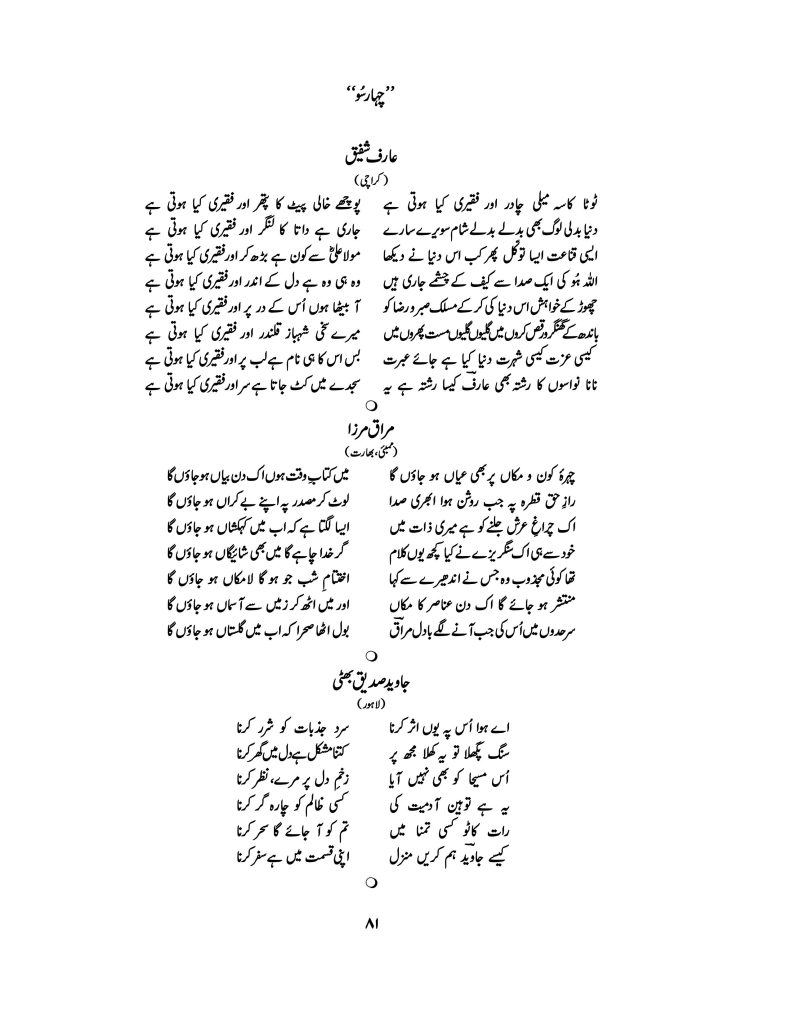 ’’چہارسُو‘‘
عارف شفیق
(کراچی)
ٹوٹا کاسہ میلی چادر اور فقیری کیا ہوتی ہے پوچھے خالی پیٹ کا پتھر اور فقیری کیا ہوتی ہے
دنیا بدلی لوگ بھی بدلے بدلے شام سویرے سارے جاری ہے داتا کا لنگر اور فقیری کیا ہوتی ہے
ایسی قناعت ایسا توکل پھر کب اس دنیا نے دیکھا مولا علیؓ سے کون ہے بڑھ کر اور فقیری کیا ہوتی ہے
اللہ ہُو کی ایک صدا سے کیف کے چشمے جاری ہیں وہ ہی وہ ہے دل کے اندر اور فقیری کیا ہوتی ہے
چھوڑ کے خواہش اس دنیا کی کر کے مسلک صبر و رضا کو آ بیٹھا ہوں اُس کے در پر اور فقیری کیا ہوتی ہے
باندھ کے گھنگرو رقص کروں میں گلیوں گلیوں مست پھروں میں میرے سخی شہباز قلندر اور فقیری کیا ہوتی ہے
کیسی عزت کیسی شہرت دنیا کیا ہے جائے عبرت بس اس کا ہی نام ہے لب پر اور فقیری کیا ہوتی ہے
نانا نواسوں کا رشتہ بھی عارفؔ کیسا رشتہ ہے یہ سجدے میں کٹ جاتا ہے سر اور فقیری کیا ہوتی ہے
مراق مرزا
(ممبئی، بھارت)
چہرۂ کون و مکاں پر بھی عیاں ہو جاؤں گا میں کتابِ وقت ہوں اک دن بیاں ہو جاؤں گا
رازِ حق قطرہ پہ جب روشن ہوا ابھری صدا لوٹ کر مصدر پہ اپنے بے کراں ہو جاؤں گا
اک چراغِ عرش جلنے کو ہے میری ذات میں ایسا لگتا ہے کہ اب میں کہکشاں ہو جاؤں گا
خود سے ہی اک سنگریزے نے کیا کچھ یوں کلام گر خدا چاہے گا میں بھی شائیگاں ہو جاؤں گا
تھا کوئی مجذوب وہ جس نے اندھیرے سے کہا اختتامِ شب جو ہو گا لامکاں ہو جاؤں گا
منتشر ہو جائے گا اک دن عناصر کا مکاں اور میں اٹھ کر زمیں سے آسماں ہو جاؤں گا
سرحدوں میں اُس کی جب آنے لگے بادل مراقؔ بول اٹھا صحرا کہ اب میں گلستاں ہو جاؤں گا
جاوید صدیق بھٹی
(لاہور)
اے ہوا اُس پہ یوں اثر کرنا سرد جذبات کو شرر کرنا
سنگ پگھلا تو یہ کھلا مجھ پر کتنا مشکل ہے دل میں گھر کرنا
اُس مسیحا کو بھی نہیں آیا زخمِ دل پر مرے، نظر کرنا
یہ ہے توہین آدمیت کی کسی ظالم کو چارہ گر کرنا
رات کاٹو کسی تمنا میں تم کو آ جائے گا سحر کرنا
کیسے جاویدؔ ہم کریں منزل اپنی قسمت میں ہے سفر کرنا
۸۱